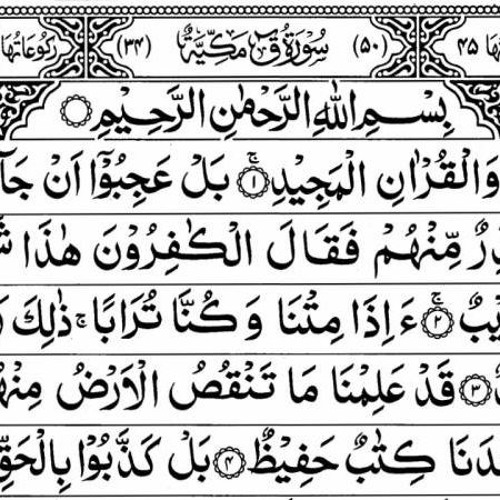 ها ٤٥ (٥٠) سُوْرَةُ قٓ مَكِّيَّةٌ (٣٤) رُكُوْعَاتُهَا
بِسْمِ اللّٰهِ الرَّحْمٰنِ الرَّحِيْمِ
وَالْقُرْاٰنِ الْمَجِيْدِ ۝١ۚ بَلْ عَجِبُوْۤا اَنْ جَآ
مِّنْهُمْ فَقَالَ الْكٰفِرُوْنَ هٰذَا
۝٢ۚ ءَاِذَا مِتْنَا وَكُنَّا تُرَابًا ۚ ذٰلِكَ
۝٣ قَدْ عَلِمْنَا مَا تَنْقُصُ الْاَرْضُ مِنْهُ
دَنَا كِتٰبٌ حَفِيْظٌ ۝٤ بَلْ كَذَّبُوْا بِالْحَقِّ